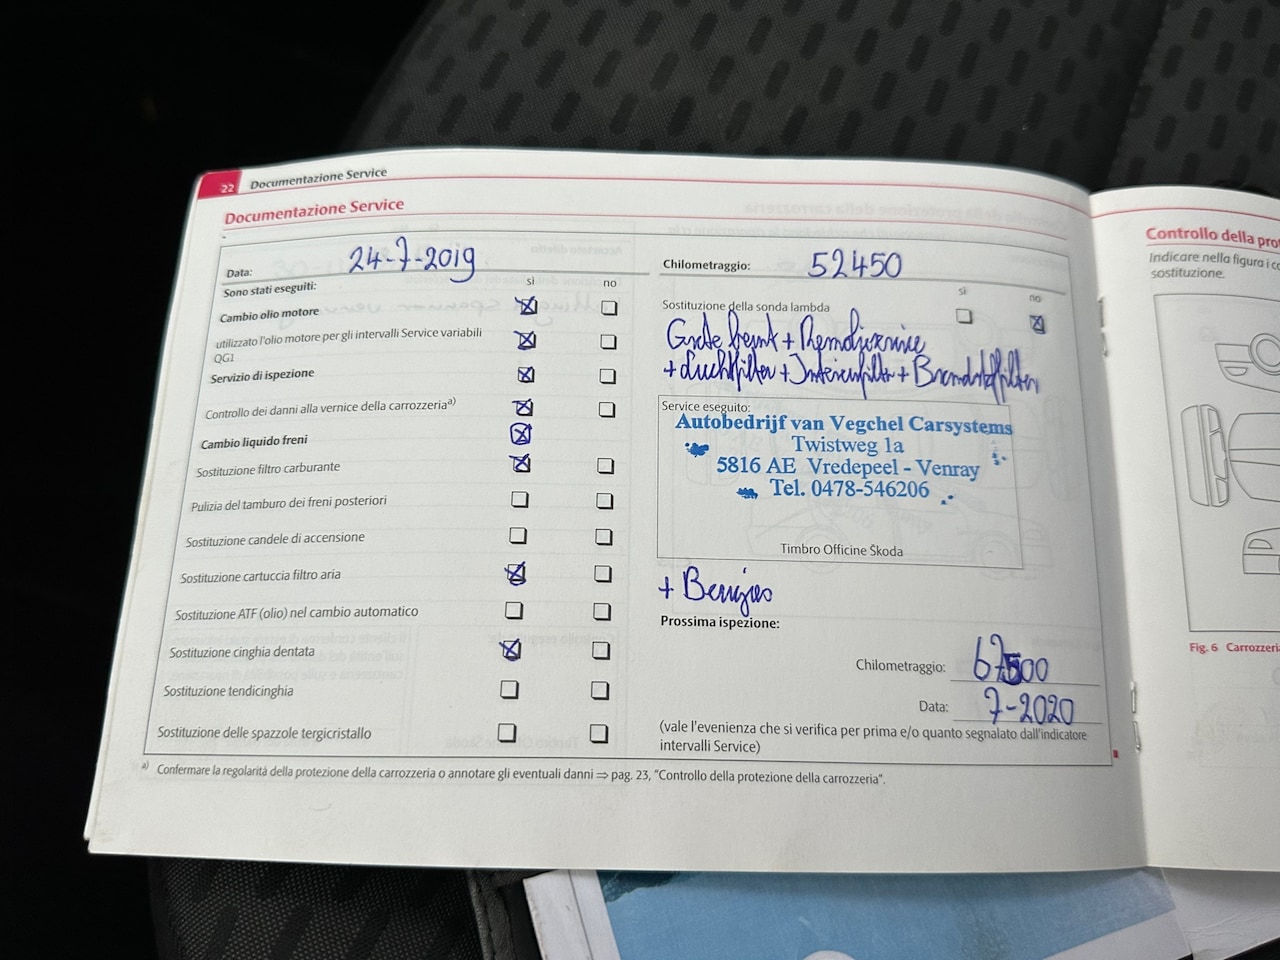 22 Documentazione Service
Documentazione Service
Data: 24-7-2019
Sono stati eseguiti: sì no
Cambio olio motore
utilizzato l'olio motore per gli intervalli Service variabili
QG1
Servizio di ispezione
Controllo dei danni alla vernice della carrozzeria a)
Cambio liquido freni
Sostituzione filtro carburante
Pulizia del tamburo dei freni posteriori
Sostituzione candele di accensione
Sostituzione cartuccia filtro aria
Sostituzione ATF (olio) nel cambio automatico
Sostituzione cinghia dentata
Sostituzione tendicinghia
Sostituzione delle spazzole tergicristallo
Chilometraggio: 52450
sì no
Sostituzione della sonda lambda
Grote beurt + Remolieservice
+ Luchtfilter + Interieurfilter + Brandstoffilter
Service eseguito:
Autobedrijf van Vegchel Carsystems
Twistweg 1a
5816 AE Vredepeel - Venray
Tel. 0478-546206
Timbro Officine Škoda
+
Prossima ispezione:
Chilometraggio: 67500
Data: 7-2020
(vale l'evenienza che si verifica per prima e/o quanto segnalato dall'indicatore
intervalli Service)
a) Confermare la regolarità della protezione della carrozzeria o annotare gli eventuali danni ⇒ pag. 23, "Controllo della protezione della carrozzeria".
Controllo della pro
Indicare nella figura i c
sostituzione.
Fig. 6 Carrozzeri